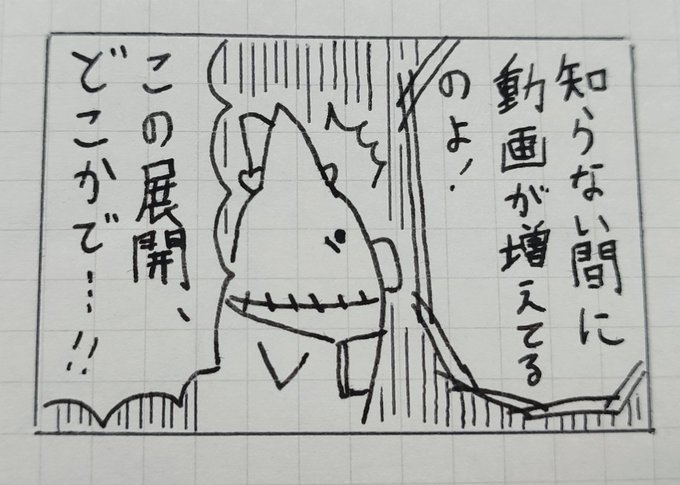 知らない間に
動画が増えてる
のよ!
この展開、
どこかで…!!